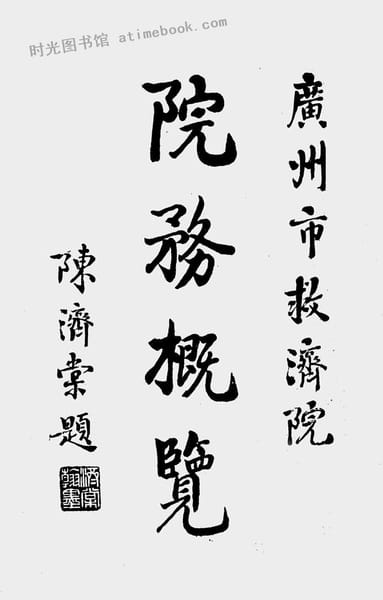 时光图书馆 atimebook.com
廣州市救濟院
院務概覽
陳濟棠題
濟棠翰墨